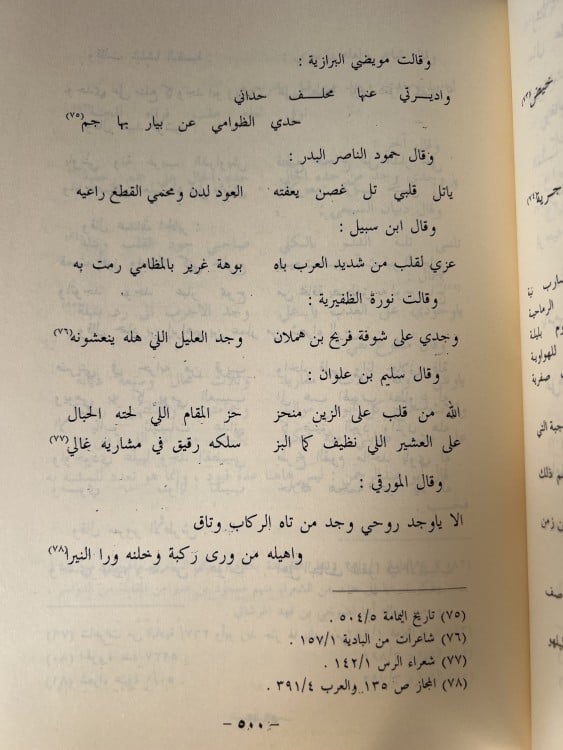 وقالت مويضي البرازية :
واديرتي عنها محلف حداني
حدي الظوامي عن بيار بها جم(٧٥)
وقال حمود الناصر البدر :
ياتل قلبي تل غصن يعفته العود لدن ومحمي القطع راعيه
وقال ابن سبيل :
عزي لقلب من شديد العرب باه بوهة غرير بالمظامي رمت به
وقالت نورة الظفيرية :
وجدي على شوفة فريح بن هملان وجد العليل اللي هله ينعشونه(٧٦)
وقال سليم بن علوان :
الله من قلب على الزين منحز حز المقام اللي لحته الحبال
على العشير اللي نظيف كما البز سلكه رقيق في مشاريه غالي(٧٧)
وقال المورقي :
الا ياوجد روحي وجد من تاه الركاب وتاق
واهيله من ورى ركبة وخلنه ورا النيرا(٧٨)
(٧٥) تاريخ اليمامة ٥٠٤/٥ .
(٧٦) شاعرات من البادية ١٥٧/١ .
(٧٧) شعراء الرس ١٤٢/١ .
(٧٨) المجاز ص ١٣٥ والعرب ٣٩١/٤ .
- ٥٠٠ -